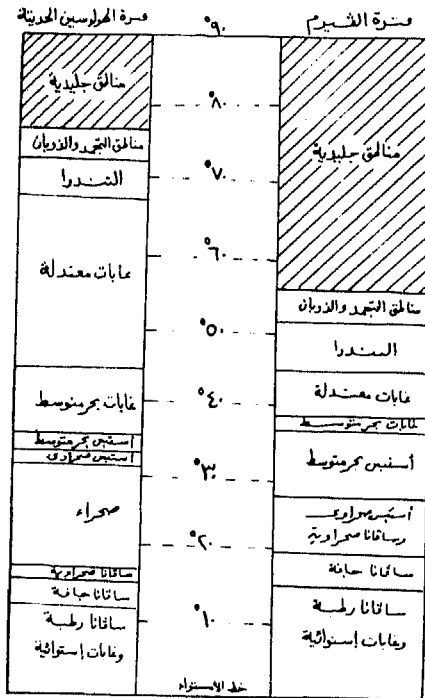 فترة الڤيرم
°٩٠
فترة الهولوسين الحديثة
مناطق جليدية
مناطق التجمد والذوبان
التندرا
غابات معتدلة
غابات بحر متوسط
أستبس بحر متوسط
أستبس صحراوى
وساڤانا صحراوية
ساڤانا جافة
ساڤانا رطبة
وغابات إستوائية
°٨٠
°٧٠
°٦٠
°٥٠
°٤٠
°٣٠
°٢٠
°١٠
خط الأستواء
مناطق جليدية
مناطق التجمد والذوبان
التندرا
غابات معتدلة
غابات بحر متوسط
أستبس بحر متوسط
أستبس صحراوى
صحراء
ساڤانا صحراوية
ساڤانا جافة
ساڤانا رطبة
وغابات إستوائية